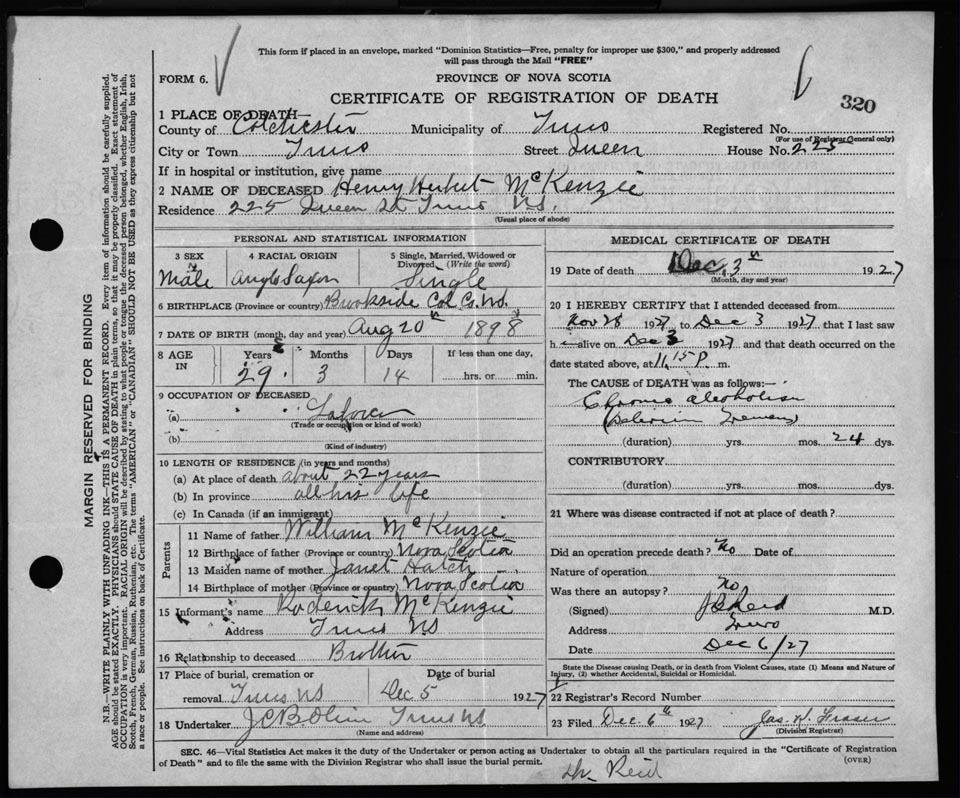 This form if placed in an envelope, marked "Dominion Statistics—Free, penalty for improper use $300," and properly addressed
will pass through the Mail "FREE"
FORM 6.
PROVINCE OF NOVA SCOTIA
320
CERTIFICATE OF REGISTRATION OF DEATH
1 PLACE OF DEATH—
County of Colchester Municipality of Truro Registered No.
(For use of Registrar General only)
City or Town Truro Street Queen House No. 225
If in hospital or institution, give name
2 NAME OF DECEASED Henry McKenzie
Residence 225 Queen St Truro N.S.
(Usual place of abode)
PERSONAL AND STATISTICAL INFORMATION
3 SEX 4 RACIAL ORIGIN 5 Single, Married, Widowed or Divorced. (Write the word)
Male Anglo Saxon Single
6 BIRTHPLACE (Province or country) Brookside Col. Co. N.S.
7 DATE OF BIRTH (month, day and year) Aug 20th 1898
8 AGE IN Years Months Days If less than one day,
29 3 14 hrs. or min.
9 OCCUPATION OF DECEASED
(a) Laborer
(Trade or occupation or kind of work)
(b)
(Kind of industry)
10 LENGTH OF RESIDENCE (in years and months)
(a) At place of death about 22 years
(b) In province all his life
(c) In Canada (if an immigrant)
Parents
11 Name of father William McKenzie
12 Birthplace of father (Province or country) Nova Scotia
13 Maiden name of mother Janet Hatch
14 Birthplace of mother (Province or country) Nova Scotia
15 Informant's name Roderick McKenzie
Address Truro NS
16 Relationship to deceased Brother
17 Place of burial, cremation or Date of burial
removal Truro NS Dec 5 1927
18 Undertaker Truro NS
(Name and address)
MEDICAL CERTIFICATE OF DEATH
19 Date of death Dec. 3 1927
(Month, day and year)
20 I HEREBY CERTIFY that I attended deceased from
Nov 28 1927 to Dec 3 1927 that I last saw
h alive on Dec 3 1927 and that death occurred on the
date stated above, at 11.15 P. m.
The CAUSE of DEATH was as follows:—
Chronic alcoholism
(Delerium Tremens)
(duration) yrs. mos. 24 dys.
CONTRIBUTORY
(duration) yrs. mos. dys.
21 Where was disease contracted if not at place of death?
Did an operation precede death? No Date of
Nature of operation
Was there an autopsy? No
(Signed) Reid M.D.
Address Truro
Date Dec 6/27
State the Disease causing Death, or in death from Violent Causes, state (1) Means and Nature of
Injury, (2) whether Accidental, Suicidal or Homicidal.
22 Registrar's Record Number
23 Filed Dec. 6th 1927 Jas. Fraser
(Division Registrar)
SEC. 46—Vital Statistics Act makes it the duty of the Undertaker or person acting as Undertaker to obtain all the particulars required in the "Certificate of Registration
of Death" and to file the same with the Division Registrar who shall issue the burial permit.
(OVER)
Dr. Reid
MARGIN RESERVED FOR BINDING
N.B.—WRITE PLAINLY WITH UNFADING INK—THIS IS A PERMANENT RECORD. Every item of information should be carefully supplied.
AGE should be stated EXACTLY. PHYSICIANS should STATE CAUSE OF DEATH in plain terms, so that it may be properly classified. Exact statement of
OCCUPATION is very important. RACIAL ORIGIN will be described by stating to what people or tongue the deceased person belonged, whether English, Irish,
Scotch, French, German, Russian, Ruthenian, etc. The terms "AMERICAN" or "CANADIAN" SHOULD NOT BE USED as they express citizenship but not
a race or people. See instructions on back of Certificate.